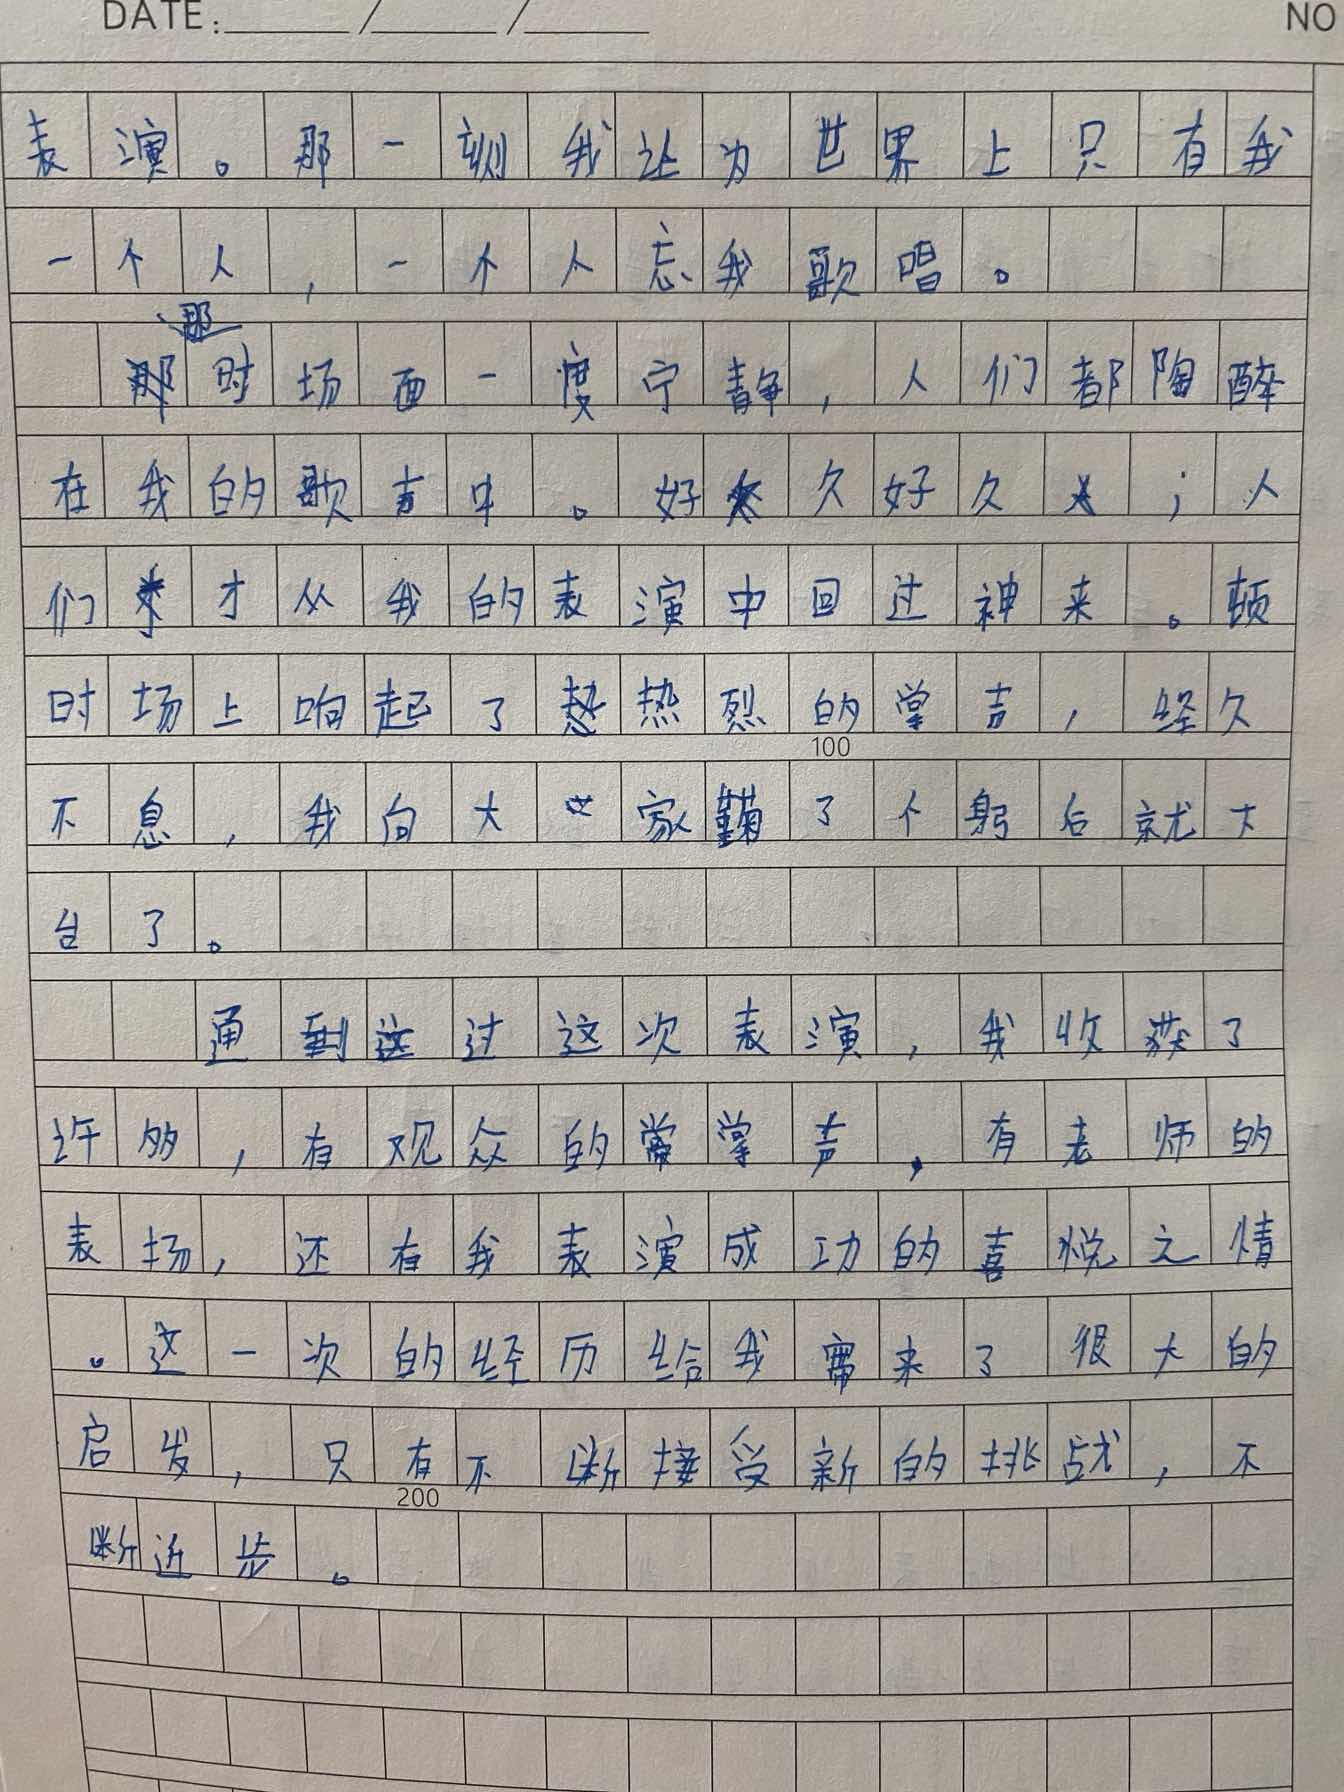 DATE: / /
NO
表演。那一刻我让为世界上只有我
一个人，一个人忘我歌唱。
那
时场面一度宁静，人们都陶醉
在我的歌声中。好久好久；人
们才从我的表演中回过神来。顿
时场上响起了热烈的掌声，经久
不息，我向大家鞠了个躬后就下
台了。
通过这次表演，我收获了
许多，有观众的掌声，有老师的
表扬，还有我表演成功的喜悦之情
。这一次的经历给我带来了很大的
启发，只有不断接受新的挑战，不
断近步。
100
200